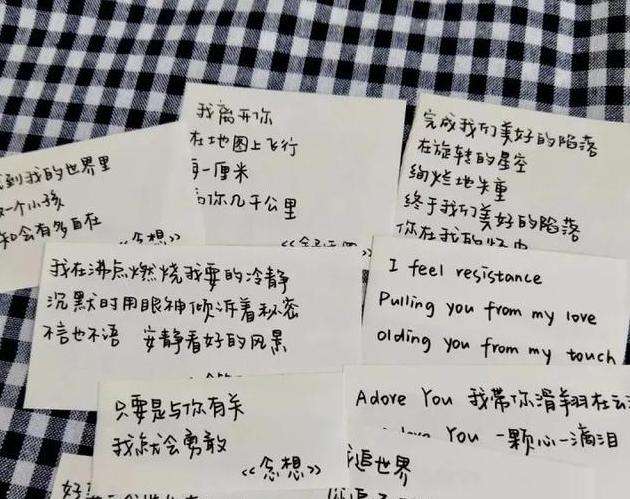 我离开你
在地图上飞行
一厘米
你几千公里
完成我们美好的陷落
在旋转的星空
绚烂地失重
终于我们美好的陷落
你在我的
到我的世界里
一个小孩
会有多自在
《念想》
我在沸点燃烧我要的冷静
沉默时用眼神倾诉着秘密
不言也不语 安静看好的风景
I feel resistance
Pulling you from my love
olding you from my touch
只要是与你有关
我就会勇敢
《念想》
Adore You 我带你滑翔在云
You 一颗心一滴泪
追世界